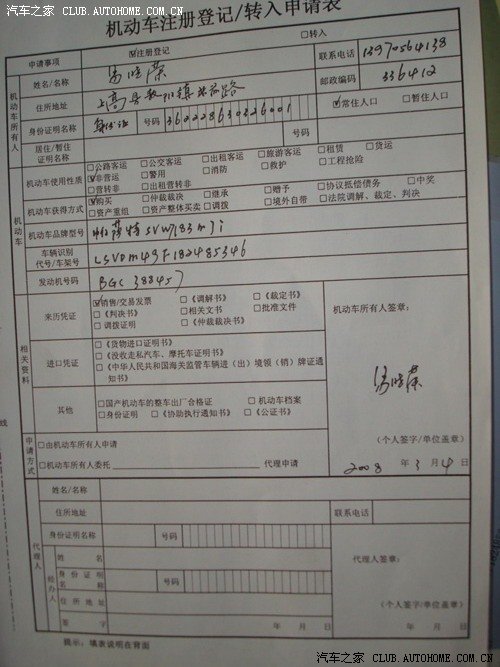 汽车之家 CLUB.AUTOHOME.COM.CN
机动车注册登记/转入申请表
申请事项 ☑注册登记 □转入
机动车所有人
姓名/名称 联系电话 13970564138
住所地址 上高县 镇 路 邮政编码 336412
身份证明名称 身份证 号码 362228630326001 ☑常住人口 □暂住人口
居住/暂住证明名称 号码
机动车
机动车使用性质 □公路客运 □公交客运 □出租客运 □旅游客运 □租赁 □货运
☑非营运 □警用 □消防 □救护 □工程抢险
□营转非 □出租营转非
机动车获得方式 ☑购买 □仲裁裁决 □继承 □赠予 □协议抵偿债务 □中奖
□资产重组 □资产整体买卖 □调拨 □境外自带 □法院调解、裁定、判决
机动车品牌型号 帕萨特SVW7183MJi
车辆识别代号/车架号 LSVDM49F182485346
发动机号码 BGC388457
相关资料
来历凭证 ☑销售/交易发票 □《调解书》 □《裁定书》
□《判决书》 □相关文书 □批准文件
□调拨证明 □《仲裁裁决书》
进口凭证 □《货物进口证明书》
□《没收走私汽车、摩托车证明书》
□《中华人民共和国海关监管车辆进（出）境领（销）牌证通知书》
其他 □国产机动车的整车出厂合格证 □机动车档案
□身份证明 □《协助执行通知书》 □《公证书》
机动车所有人签章：
(个人签字/单位盖章)
2008 年 3 月 4 日
申请方式 □由机动车所有人申请
□机动车所有人委托 代理申请
代理人
姓名/名称
住所地址 联系电话
身份证明名称 号码
经办人
姓名
身份证明名称 号码
住所地址
签 年 月 日
代理人签章：
(个人签字/单位盖章)
年 月 日
提示：填表说明在背面
线
汽车之家 CLUB.AUTOHOME.COM.CN